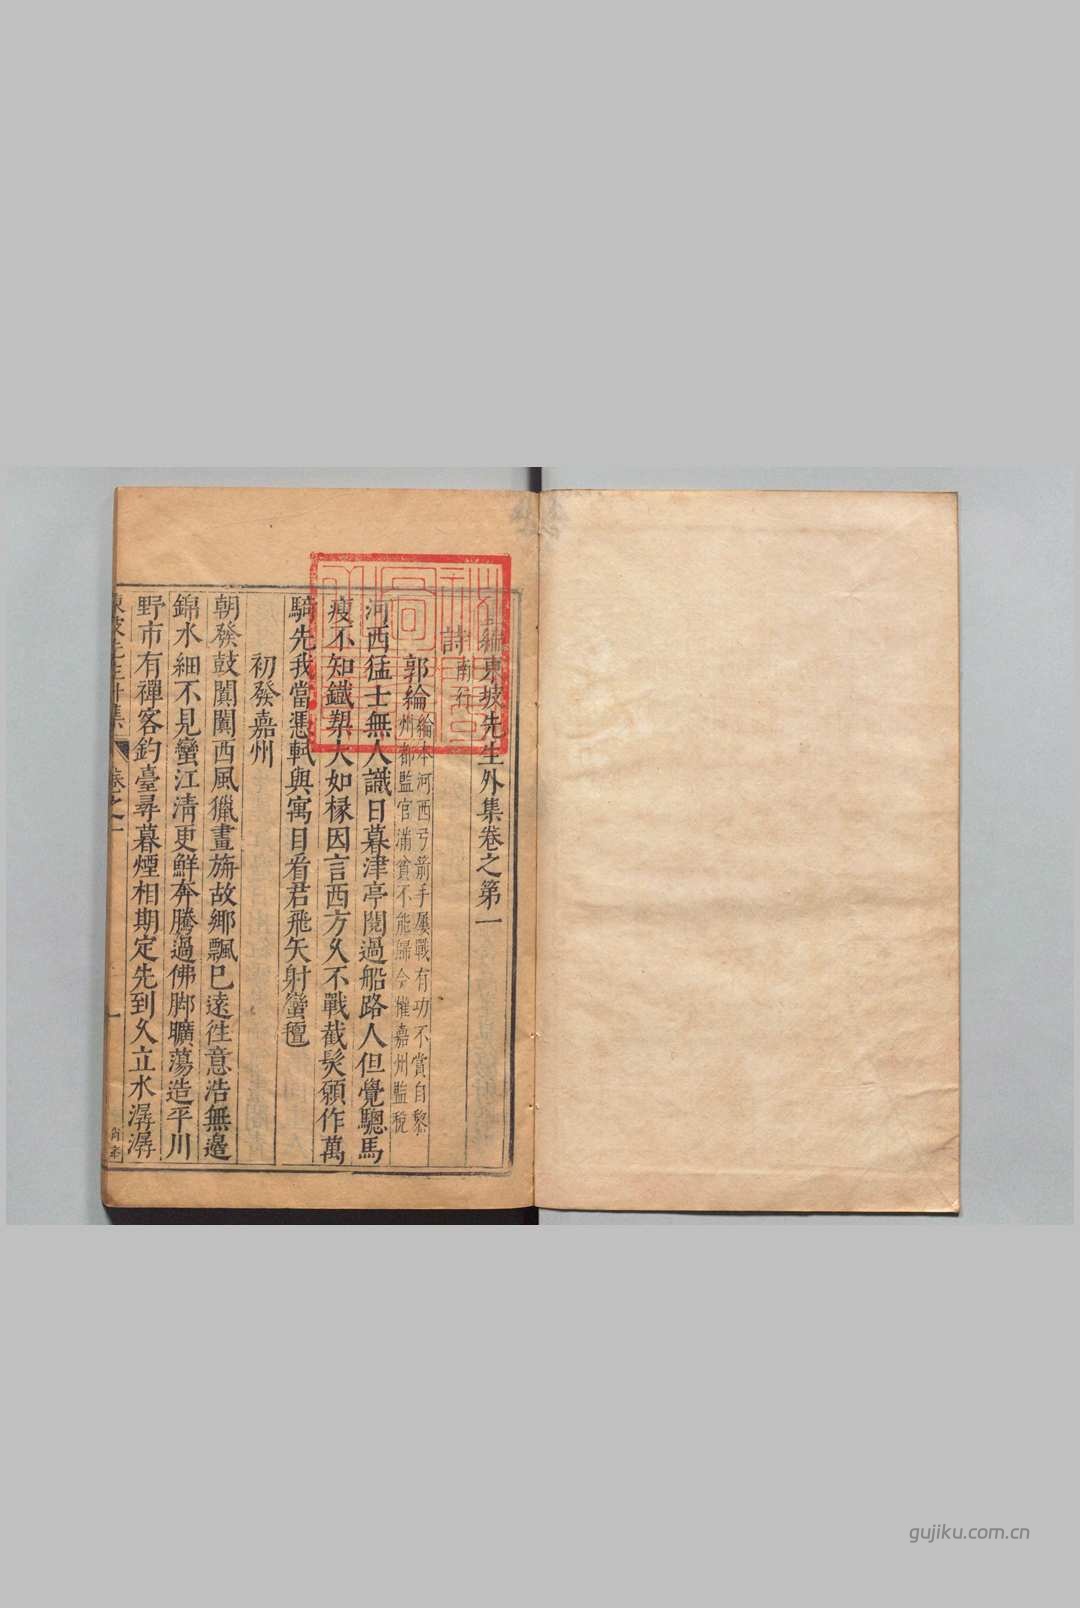 重編東坡先生外集卷之第一
詩南行
郭綸綸本河西弓箭手屢戰有功不賞自黎
州都監官滿貧不能歸今權嘉州監稅
河西猛士無人識日暮津亭閱過船路人但覺驄馬
瘦不知鐵槊大如椽因言西方久不戰截髮願作萬
騎先我當憑軾與寓目看君飛矢射蠻氊
初發嘉州
朝發鼓闐闐西風獵畫旃故鄉飄已遠徃意浩無邉
錦水細不見蠻江清更鮮奔騰過佛脚曠蕩造平川
野市有禪客釣臺尋暮煙相期定先到久立水潺潺
東坡先生外集 卷之一 一
gujiku.com.cn